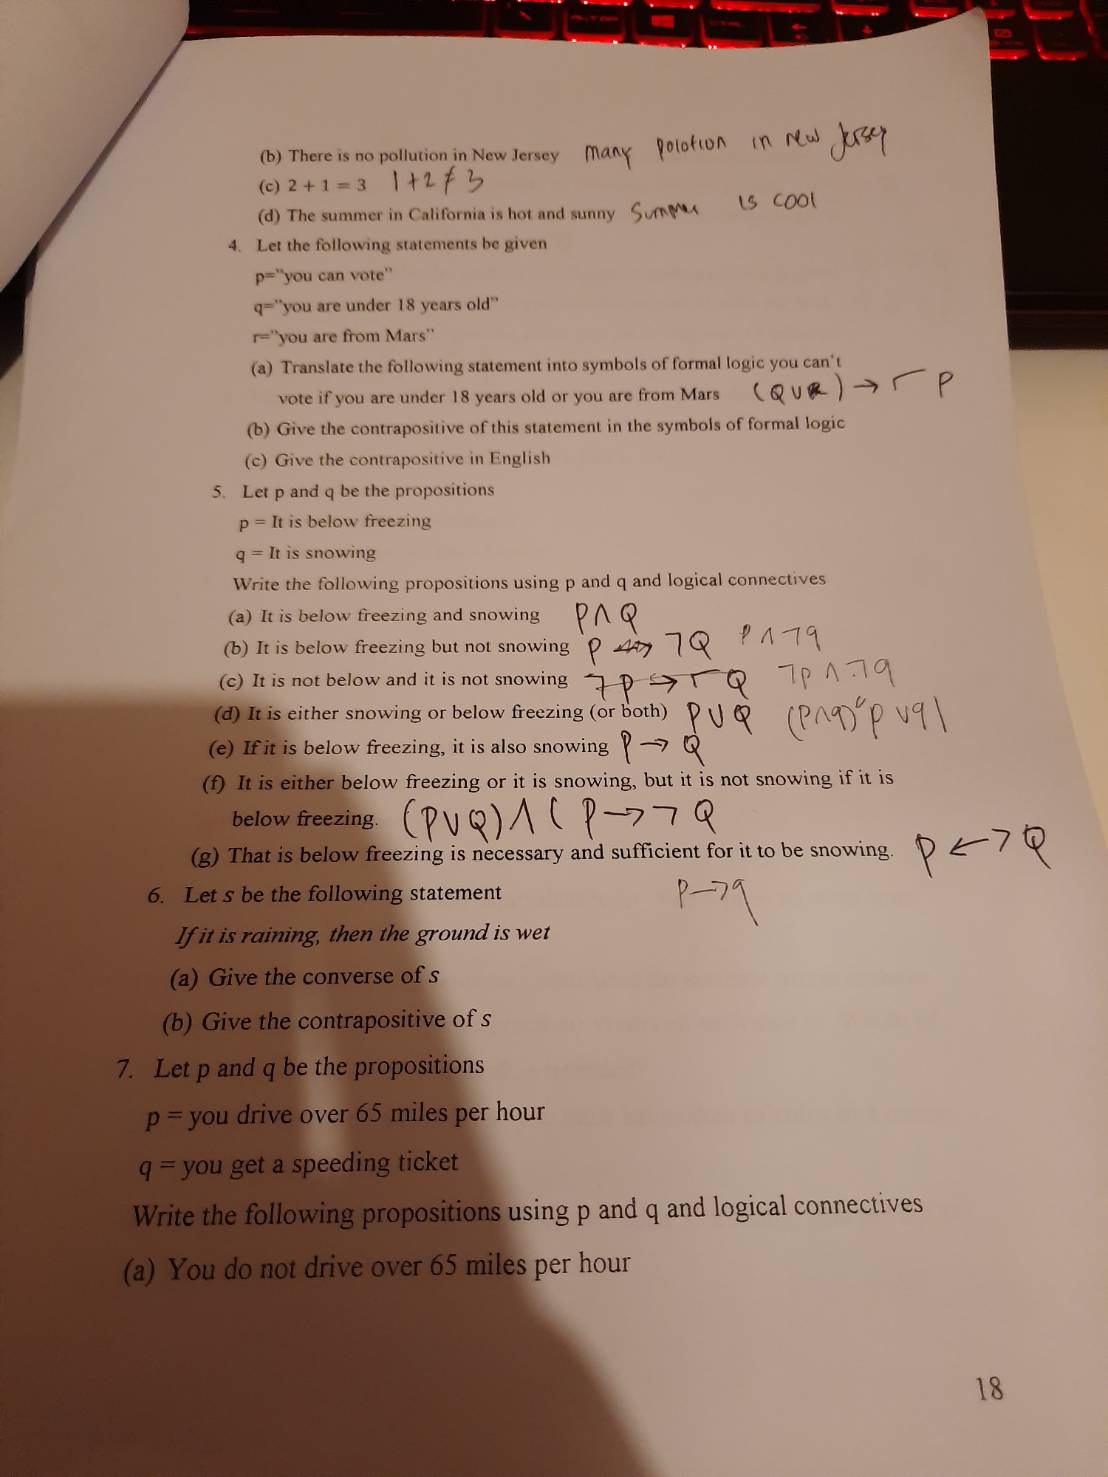 (b) There is no pollution in New Jersey many polotion in new Jersey
(c) 2 + 1 = 3 1+2 ≠ 3
(d) The summer in California is hot and sunny Summer is cool
4. Let the following statements be given
p="you can vote"
q="you are under 18 years old"
r="you are from Mars"
(a) Translate the following statement into symbols of formal logic you can't
vote if you are under 18 years old or you are from Mars (Q∪R) → ¬ P
(b) Give the contrapositive of this statement in the symbols of formal logic
(c) Give the contrapositive in English
5. Let p and q be the propositions
p = It is below freezing
q = It is snowing
Write the following propositions using p and q and logical connectives
(a) It is below freezing and snowing P∧Q
(b) It is below freezing but not snowing P ¬Q P∧¬q
(c) It is not below and it is not snowing ¬P → ¬Q ¬p∧¬q
(d) It is either snowing or below freezing (or both) P∪Q (p∧q) p∨q
(e) If it is below freezing, it is also snowing P → Q
(f) It is either below freezing or it is snowing, but it is not snowing if it is
below freezing. (P∨Q)∧(P→¬Q
(g) That is below freezing is necessary and sufficient for it to be snowing. P↔Q
P→q
6. Let s be the following statement
If it is raining, then the ground is wet
(a) Give the converse of s
(b) Give the contrapositive of s
7. Let p and q be the propositions
p = you drive over 65 miles per hour
q = you get a speeding ticket
Write the following propositions using p and q and logical connectives
(a) You do not drive over 65 miles per hour
18